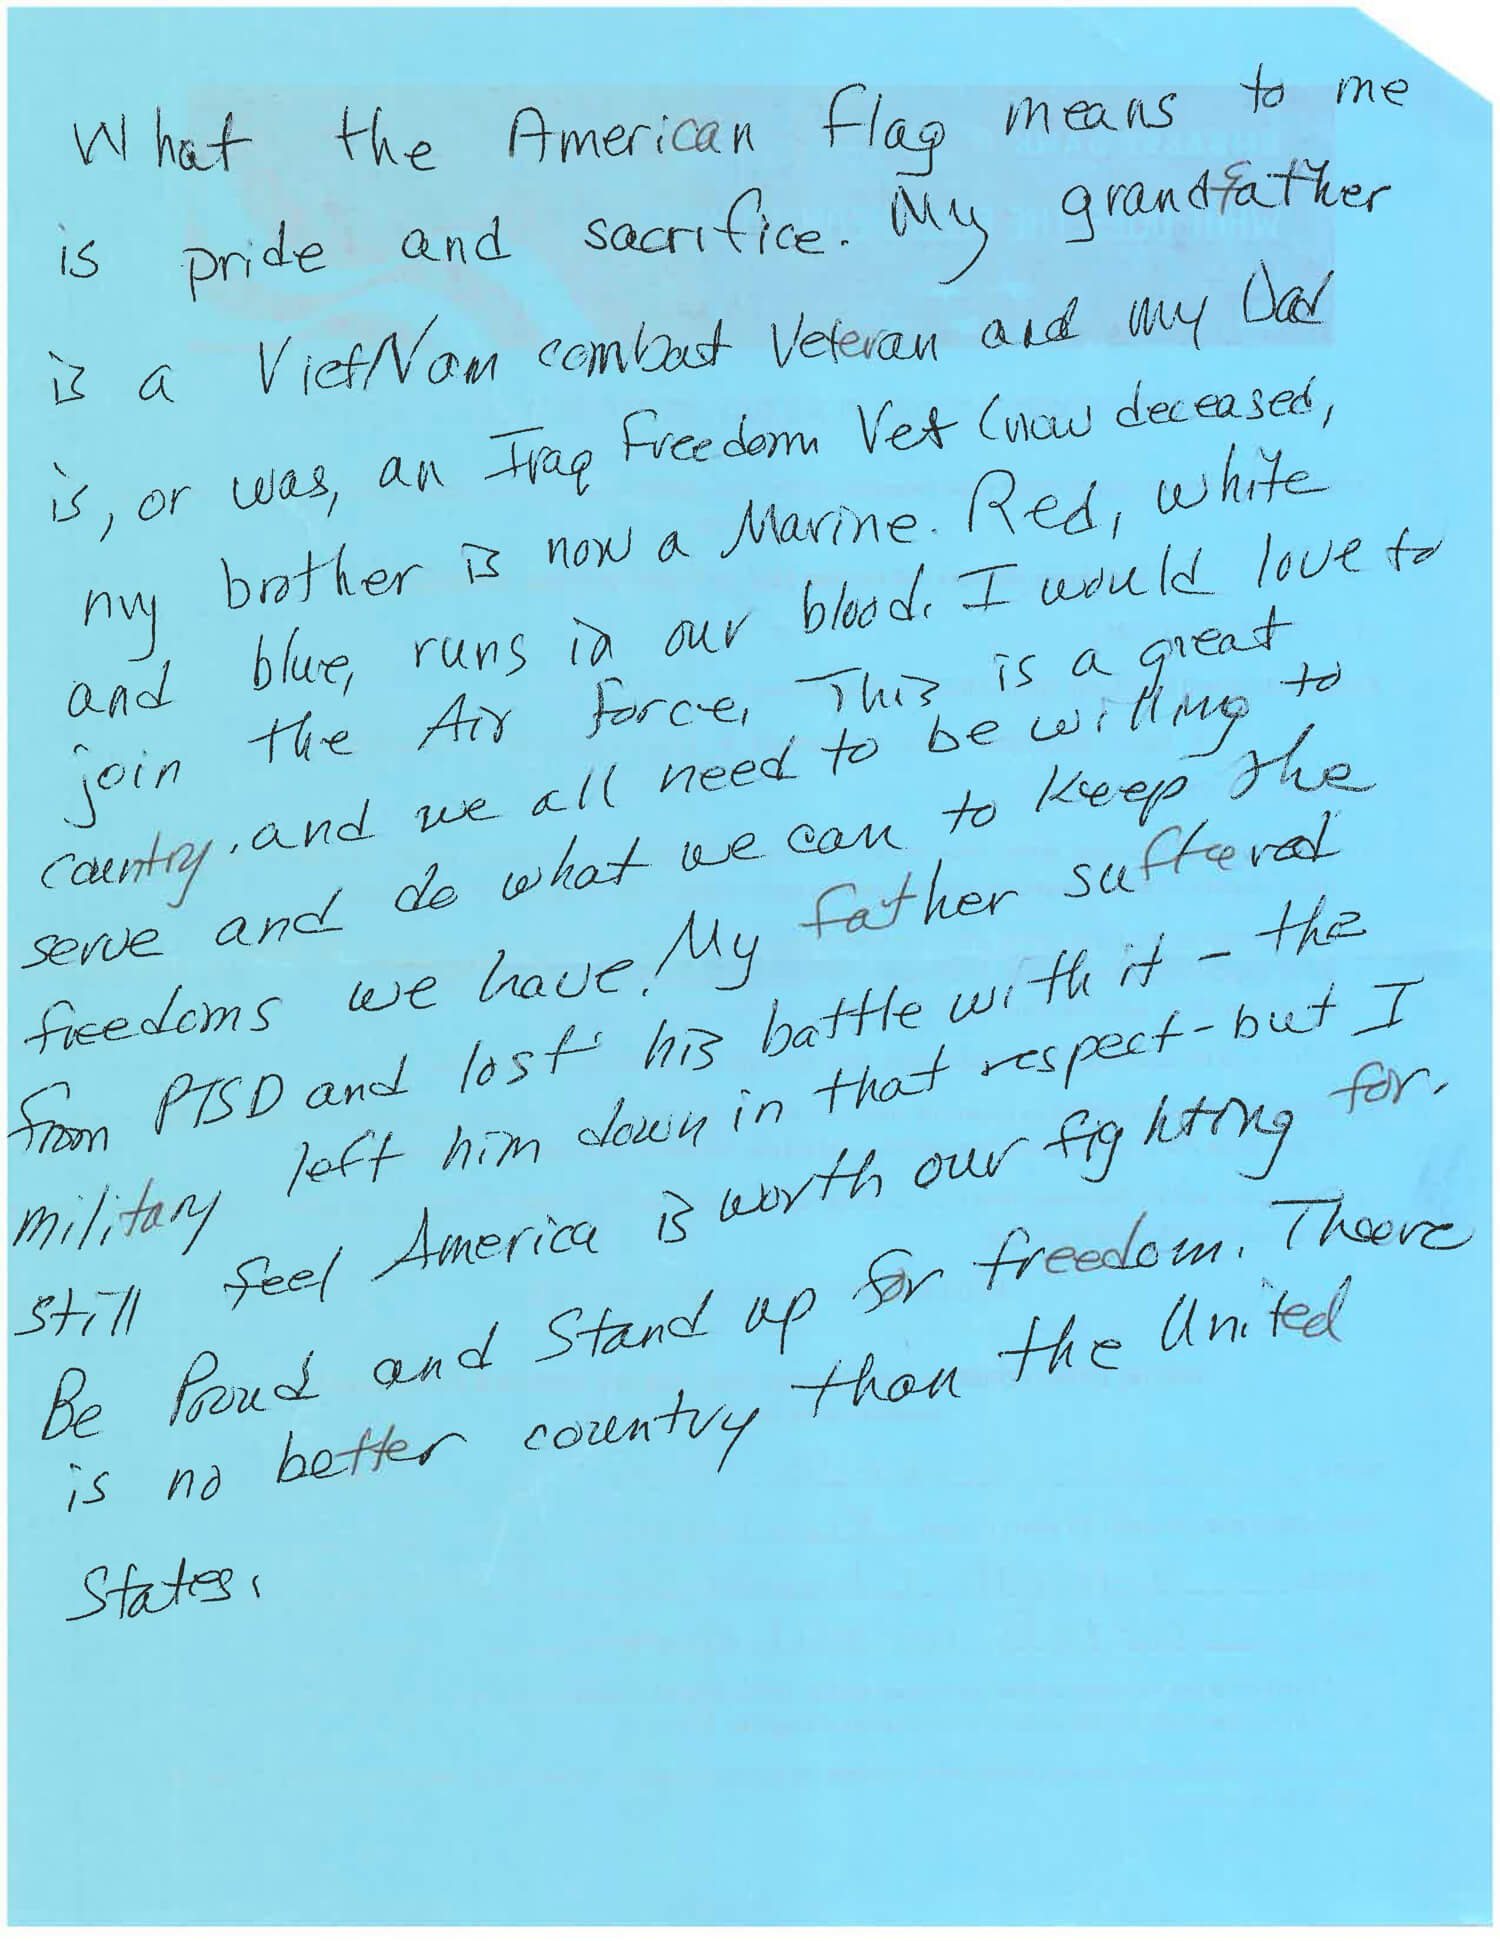 What the American flag means to me
is pride and sacrifice. My grandfather
is a VietNam combat Veteran and my Dad
is, or was, an Iraq Freedom Vet (now deceased,
my brother is now a Marine. Red, white
and blue, runs in our blood. I would love to
join the Air Force. This is a great
country. and we all need to be willing to
serve and do what we can to keep the
freedoms we have. My father suffered
from PTSD and lost his battle with it - the
military left him down in that respect - but I
still feel America is worth our fighting for.
Be Proud and Stand up for freedom. Theere
is no better country than the United
States.